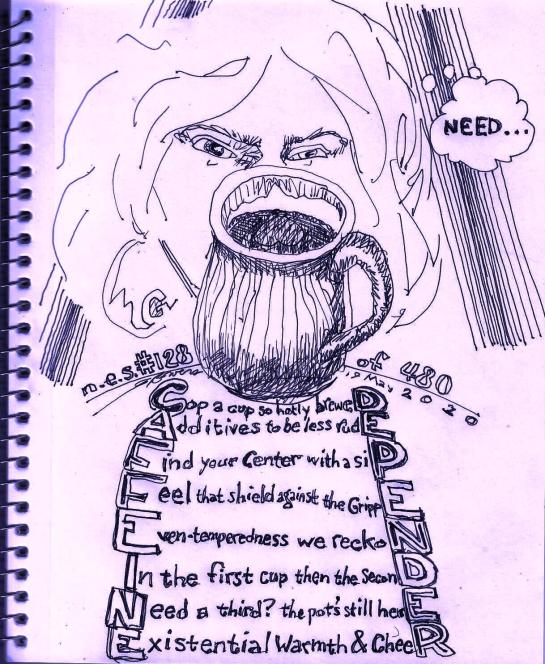 NEED...
n.e.s.#128 of 480
19 May 2020
Cop a cup so hotly breweD
Additives to be less rudE
Find your Center with a siP
Feel that shield against the GrippE
Even-temperedness we reckoN
In the first cup then the SeconD
Need a third? the pot's still herE
Existential Warmth & CheeR